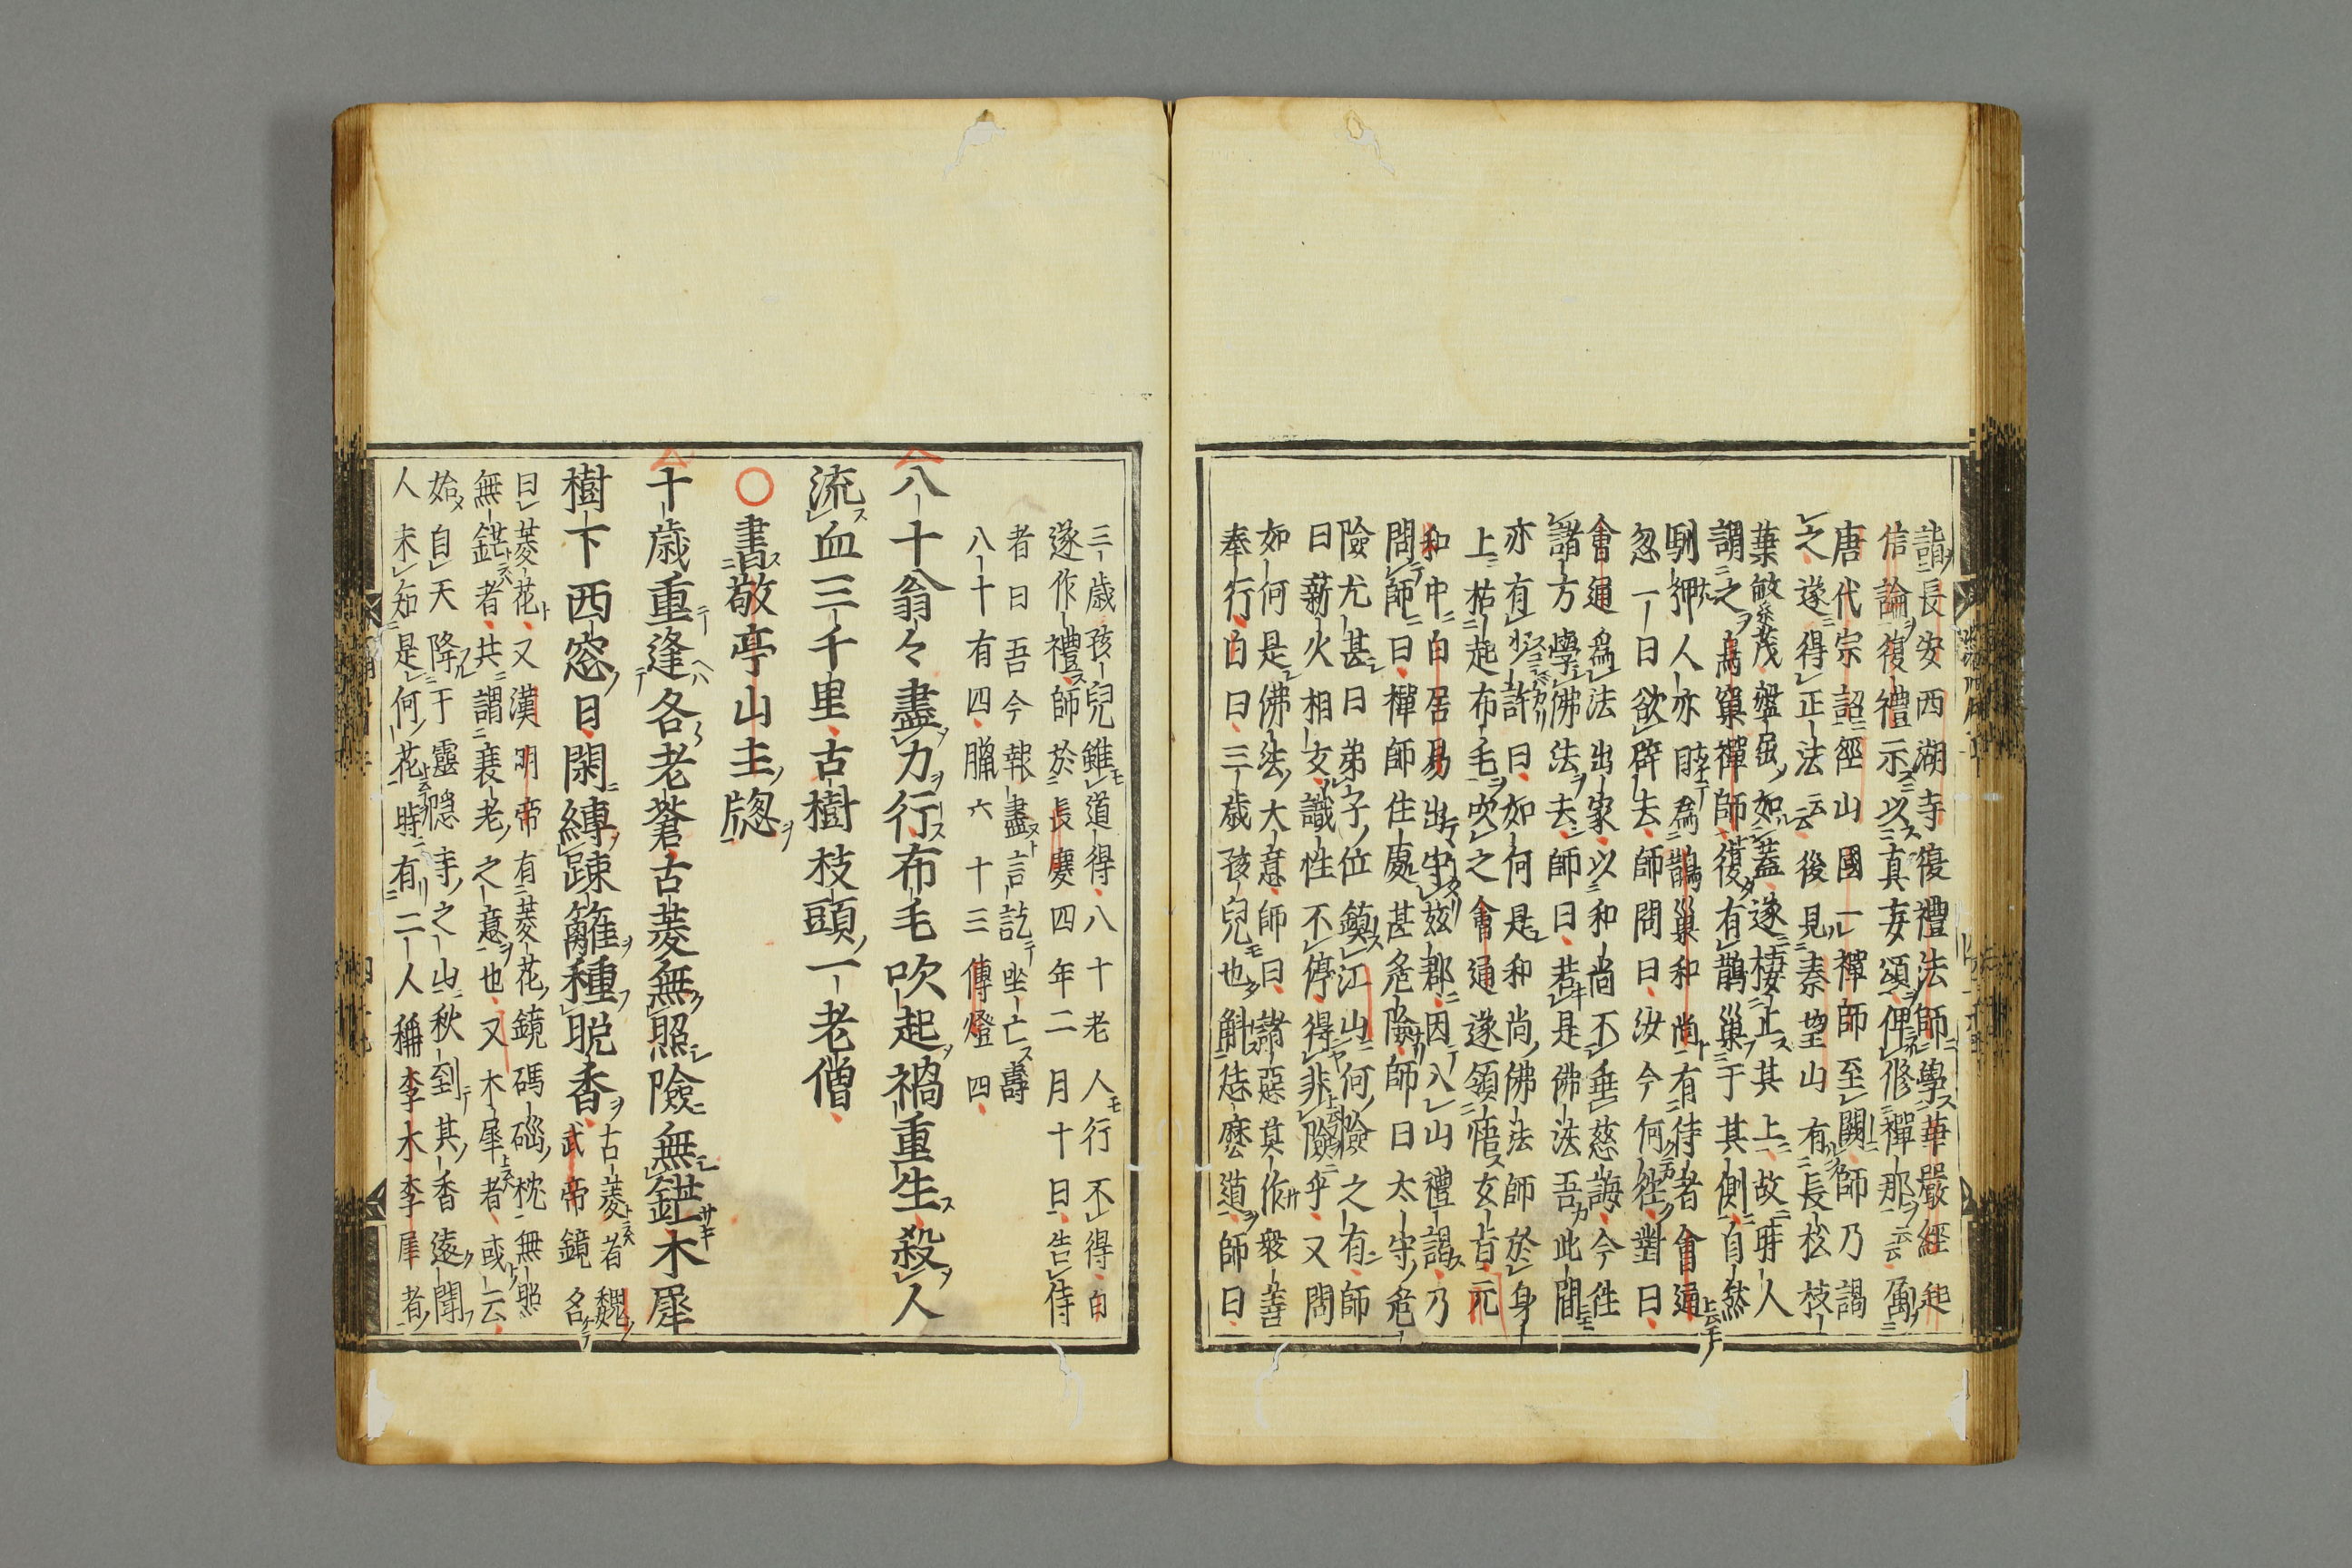 詣長安西湖寺復禮法師學華嚴經起
信論復禮示以真妄頌俾修禪那云云屬
唐代宗詔徑山國一禪師至闕師乃謁
之遂得正法云云後見秦望山有長松枝
葉繁茂盤屈如蓋遂棲止其上故時人
謂之鳥窠禪師復有鵲巢于其側自然
馴狎人亦目為鵲巢和尚有侍者會通
忽一日欲辭去師問曰汝今何往對曰
會通為法出家以和尚不垂慈誨今徃
諸方學佛法去師曰若是佛法吾此間
亦有少許曰如何是和尚佛法師於身
上拈起布毛吹之會通遂領悟玄旨元
和中白居易出守茲郡因入山禮謁乃
問師曰禪師住處甚危險師曰太守危
險尤甚曰弟子位鎮江山何險之有師
曰薪火相交識性不停得非險乎又問
如何是佛法大意師曰諸惡莫作衆善
奉行白曰三歳孩兒也解恁麼道師曰
三歳孩兒雖道得八十老人行不得白
遂作禮師於長慶四年二月十日告侍
者曰吾今報盡言訖坐亡壽
八十有四臘六十三傳燈四
八十翁々盡力行布毛吹起禍重生殺人
流血三千里古樹枝頭一老僧
書敬亭山主牎
十歳重逢各老蒼古菱無照險無鋩木犀
樹下西窓日閑縛踈籬種晩香
古菱者魏
武帝鏡名
曰菱花又漢明帝有菱花鏡碼碯枕無照
無鋩者共謂衰老之意也又木犀者或云
始自天降于靈隠寺之山秋到其香遠聞
人未知是何花時有二人稱李木李犀者